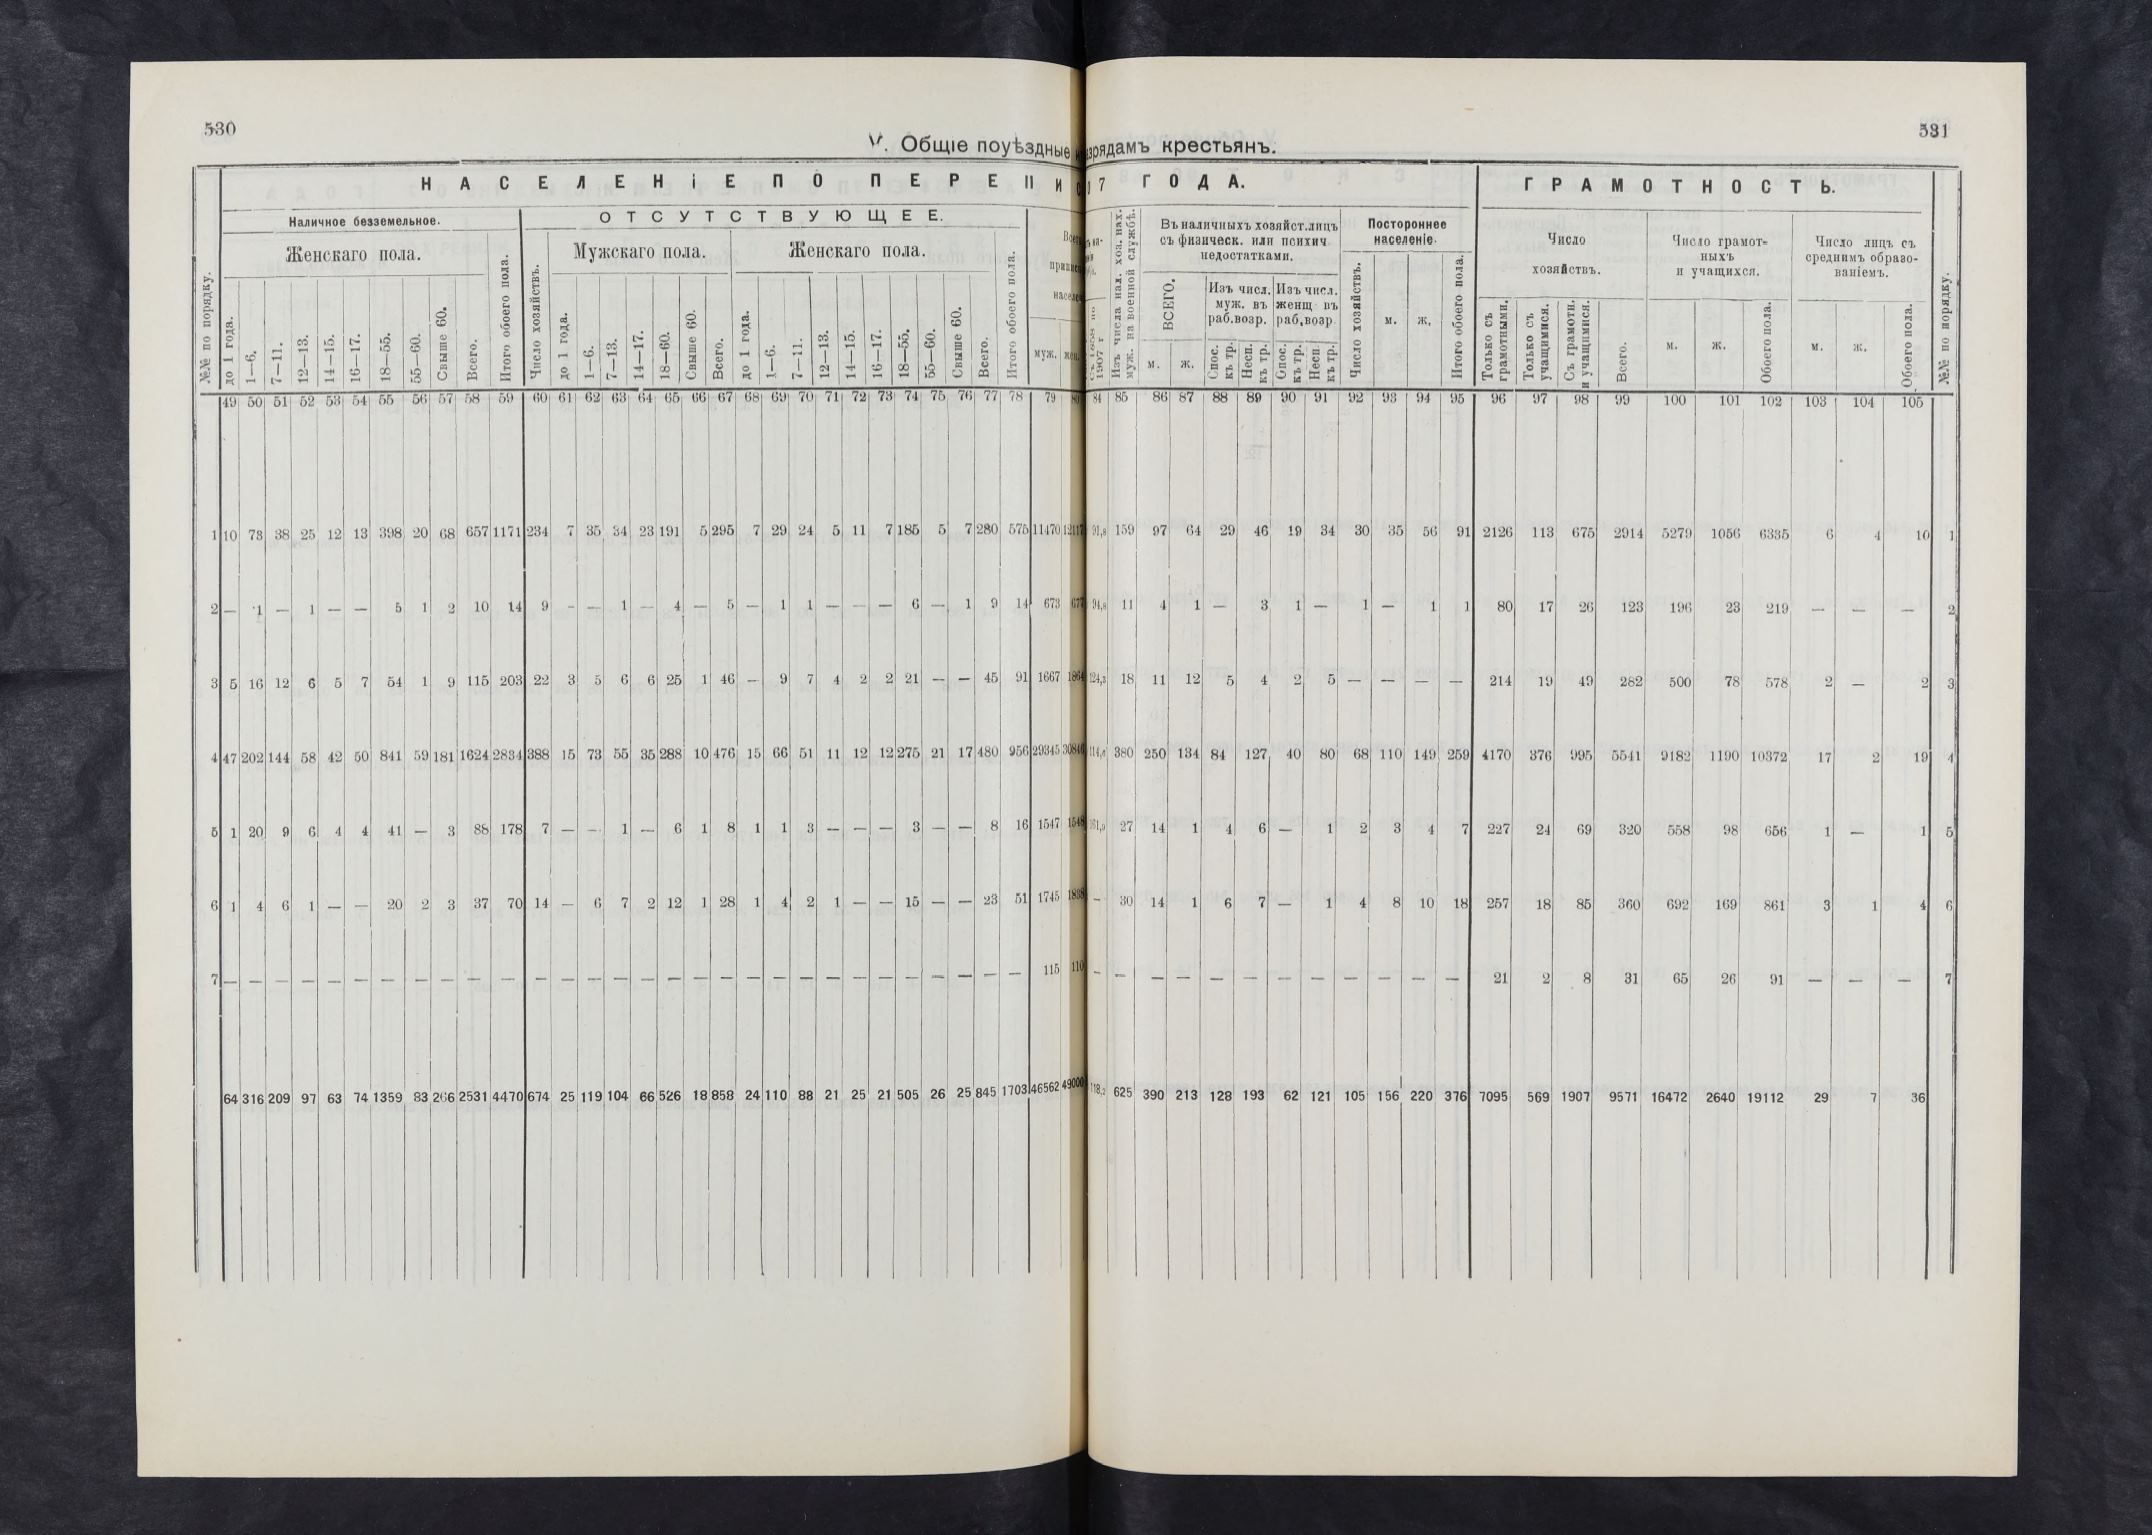 530
531
V. Общіе поуѣздные
азрядамъ крестьянъ.
НАСЕЛЕНІЕ ПО ПЕРЕПИС
07 ГОДА.
ГРАМОТНОСТЬ.
№№ по порядку.
Наличное безземельное.
Женскаго пола.
до 1 года.
1—6.
7—11.
12—13.
14—15.
16—17.
18—55.
55—60.
Свыше 60.
Всего.
Итого обоего пола.
ОТСУТСТВУЮЩЕЕ.
Число хозяйствъ.
Мужскаго пола.
до 1 года.
1—6.
7—13.
14—17.
18—60.
Свыше 60.
Всего.
Женскаго пола.
до 1 года.
1—6.
7—11.
12—13.
14—15.
16—17.
18—55.
55—60.
Свыше 60.
Всего.
Итого обоего пола.
муж.
жен.
1907 г
Изъ числа нал. хоз. нах.
муж. на военной службѣ.
Въ наличныхъ хозяйст.лицъ
съ физическ. или психич.
недостатками.
ВСЕГО.
м.
ж.
Изъ числ.
муж. въ
раб.возр.
Спос.
къ тр.
Несп.
къ тр.
Изъ числ.
женщ. въ
раб.возр
Опос.
къ тр.
Несп
къ тр.
Постороннее
населеніе.
Число хозяйствъ.
м.
ж.
Итого обоего пола.
Число
хозяйствъ.
Только съ
грамотными.
Только съ
учащимися.
Съ грамотн.
и учащимися.
Всего.
Число грамот-
ныхъ
и учащихся.
м.
ж.
Обоего пола.
Число лицъ съ
среднимъ образо-
ваніемъ.
м.
ж.
Обоего пола.
№№ по порядку.
49 50 51 52 53 54 55 56 57 58 59 60 61 62 63 64 65 66 67 68 69 70 71 72 73 74 75 76 77 78 79 80 84 85 86 87 88 89 90 91 92 93 94 95 96 97 98 99 100 101 102 103 104 105
1 10 73 38 25 12 13 398 20 68 657 1171 234 7 35 34 23 191 5 295 7 29 24 5 11 7 185 5 7 280 575 11470 12117 91,8 159 97 64 29 46 19 34 30 35 56 91 2126 113 675 2914 5279 1056 6335 6 4 10 1
2 — 1 — 1 — — 5 1 2 10 14 9 — — 1 — 4 — 5 — 1 1 — — — 6 — 1 9 14 673 677 94,8 11 4 1 — 3 1 — 1 — 1 1 80 17 26 123 196 23 219 — — — 2
3 5 16 12 6 5 7 54 1 9 115 203 22 3 5 6 6 25 1 46 — 9 7 4 2 2 21 — — 45 91 1667 1864 124,3 18 11 12 5 4 2 5 — — — — 214 19 49 282 500 78 578 2 — 2 3
4 47 202 144 58 42 50 841 59 181 1624 2834 388 15 73 55 35 288 10 476 15 66 51 11 12 12 275 21 17 480 956 29345 30846 380 250 134 84 127 40 80 68 110 149 259 4170 376 995 5541 9182 1190 10372 17 2 19 4
5 1 20 9 6 4 4 41 — 3 88 178 7 — — 1 — 6 1 8 1 1 3 — — — 3 — — 8 16 1547 1548 27 14 1 4 6 — 1 2 3 4 7 227 24 69 320 558 98 656 1 — 1 5
6 1 4 6 1 — — 20 2 3 37 70 14 — 6 7 2 12 1 28 1 4 2 1 — — 15 — — 23 51 1745 1838 — 30 14 1 6 7 — 1 4 8 10 18 257 18 85 360 692 169 861 3 1 4 6
7 — — — — — — — — — — — — — — — — — — — — — — — — — — — — — — 115 110 — — — — — — — — — — — — 21 2 8 31 65 26 91 — — — 7
64 316 209 97 63 74 1359 83 266 2531 4470 674 25 119 104 66 526 18 858 24 110 88 21 25 21 505 26 25 845 1703 46562 49000 118,2 625 390 213 128 193 62 121 105 156 220 376 7095 569 1907 9571 16472 2640 19112 29 7 36